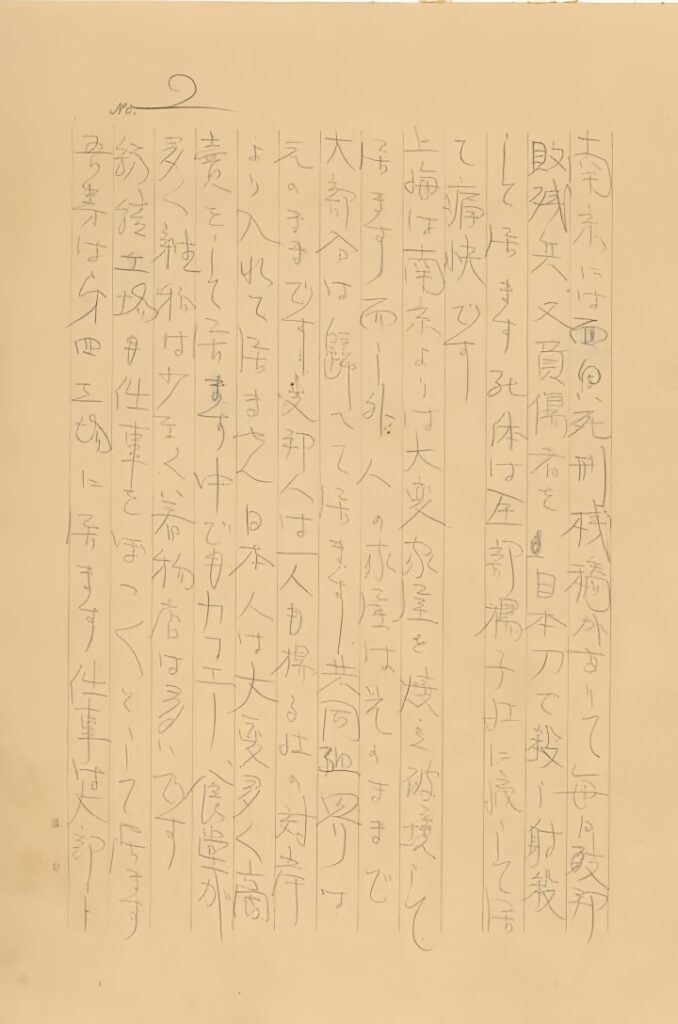 No. 2
南京には面白い死刑桟橋がありて毎日支那
敗残兵又負傷者を日本刀で殺し射殺
して居ます死体は全部揚子江に流して居
て痛快です
上海は南京よりは大変家屋を焼き破壊して
居ます而し外人の家屋は其のままで
大部分は帰へて居ます共同租界は
元のままです支那人は一人も揚る江の対岸
より入れて居ません日本人は大変多く商
売をして居ます中でもカフエー、食堂が
多く雑物は少なく着物店は多いです
紡績工場も仕事をぼつ〱として居ます
吾等は第四工場に居ます仕事は大部ト